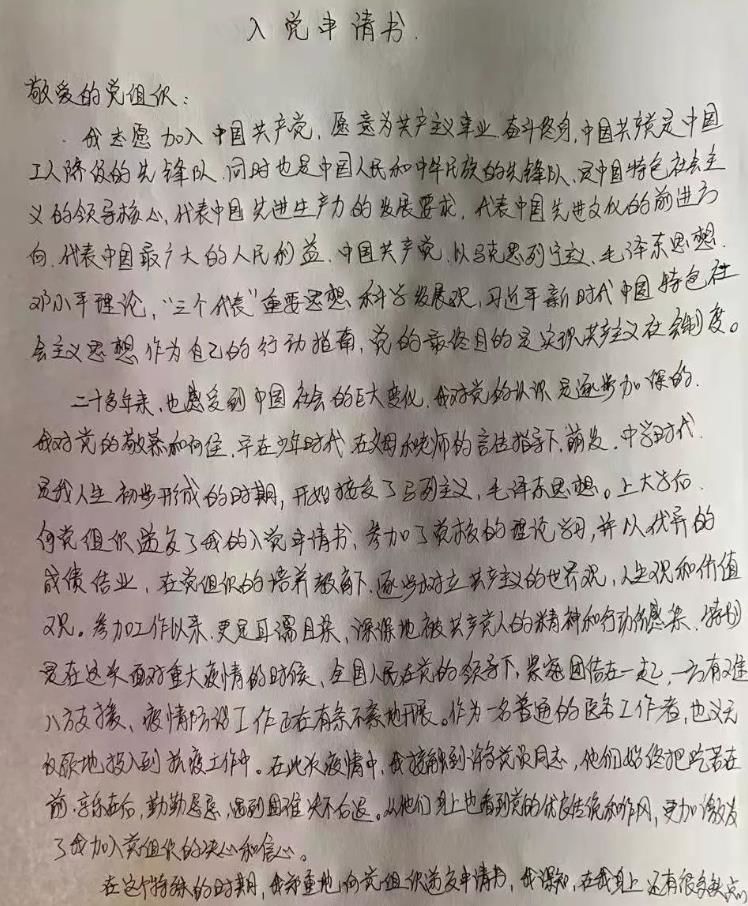 入党申请书.
敬爱的党组织:
我志愿加入中国共产党,愿意为共产主义事业奋斗终身,中国共产党是中国
工人阶级的先锋队,同时也是中国人民和中华民族的先锋队,是中国特色社会主
义的领导核心,代表中国先进生产力的发展要求,代表中国先进文化的前进方
向,代表中国最广大的人民利益.中国共产党,以马克思列宁主义,毛泽东思想.
邓小平理论,“三个代表”重要思想 科学发展观,习近平新时代中国特色社
会主义思想作为自己的行动指南,党的最终目的是实现共产主义社会制度。
二十多年来,也感受到中国社会的巨大变化,我对党的认识是逐步加深的.
我对党的敬慕和向往,早在少年时代在父母和老师的言传指导下,萌发.中学时代.
是我人生初步形成的时期,开始接受了马列主义,毛泽东思想。上大学后
向党组织递交了我的入党申请书,参加了党校的理论学习,并以优异的
成绩结业,在党组织的培养教育下,逐步树立共产主义的世界观,人生观和价值
观。参加工作以来,更是耳濡目染,深深地被共产党人的精神和行动所感染,特别
是在这次面对重大疫情的时候,全国人民在党的领导下,紧密团结在一起,一方有难
八方支援,疫情防设工作正在有条不紊地开展。作为一名普通的医务工作者,也义无
反顾地投入到抗疫工作中。在此次疫情中,我接触到许多党员同志,他们始终把吃苦在
前,享乐在后,勤勤恳恳,遇到困难决不后退。从他们身上也看到党的优良传统和作风,更加激发
了我加入党组织的决心和信心。
在这个特殊的时期,我郑重地向党组织递交申请书,我深知,在我身上还有很多缺点